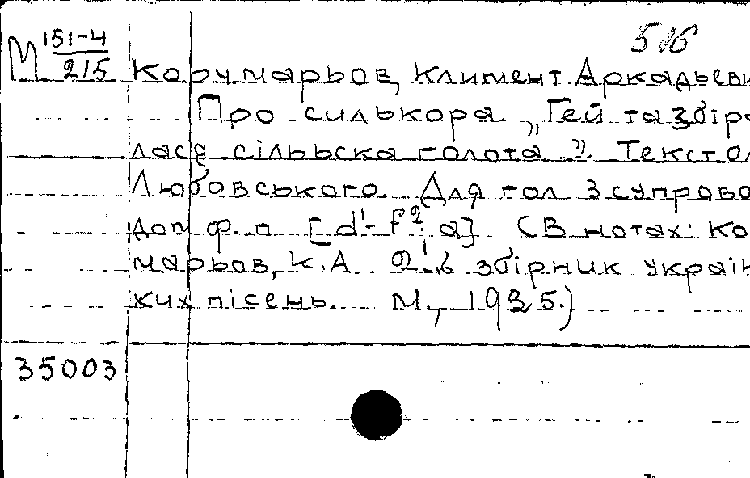 М 151-4/215
516
Корчмарьов, Климент Аркадьеви
Про силькора „Гей та збіра
лася сільська голота". Текст О.
Любовського. Для гол. з супрово
дом ф.-п. [d¹-f²; a] (В нотах: Ко
марьов, К.А. збірник україн
ких пісень. М., 1925.)
35003